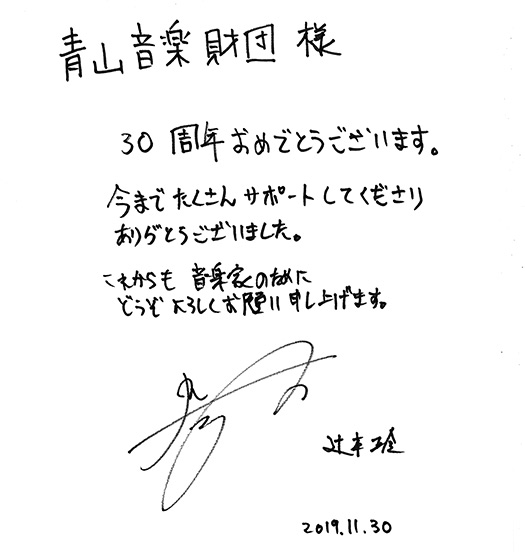 青山音楽財団 様
30周年おめでとうございます。
今までたくさんサポートしてくださり
ありがとうございました。
これからも 音楽家のために
どうぞよろしくお願い申し上げます。
辻本玲
2019.11.30